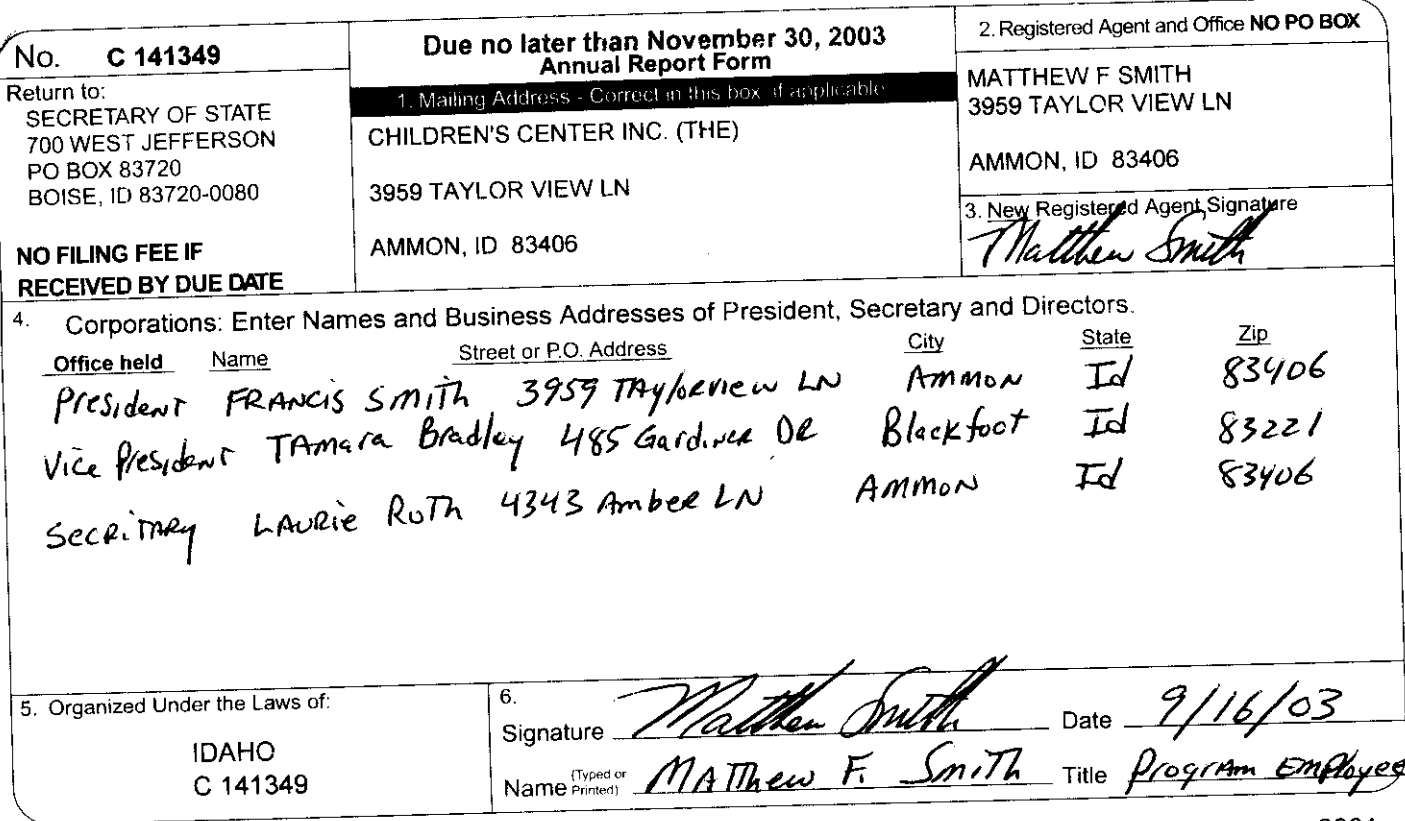 No. C 141349
Return to:
SECRETARY OF STATE
700 WEST JEFFERSON
PO BOX 83720
BOISE, ID 83720-0080
NO FILING FEE IF
RECEIVED BY DUE DATE
Due no later than November 30, 2003
Annual Report Form
1. Mailing Address - Correct in this box if applicable
CHILDREN'S CENTER INC. (THE)
3959 TAYLOR VIEW LN
AMMON, ID 83406
2. Registered Agent and Office NO PO BOX
MATTHEW F SMITH
3959 TAYLOR VIEW LN
AMMON, ID 83406
3. New Registered Agent Signature
Matthew Smith
4. Corporations: Enter Names and Business Addresses of President, Secretary and Directors.
Office held Name Street or P.O. Address City State Zip
President FRANCIS SMITH 3959 TAylorview LN AMMON Id 83406
Vice President TAmara Bradley 485 Gardner DR Blackfoot Id 83221
SecRiTARy LAURie RoTh 4343 Amber LN AMMON Id 83406
5. Organized Under the Laws of:
IDAHO
C 141349
6.
Signature Matthew Smith Date 9/16/03
Name (Typed or Printed) MATThew F. SmiTh Title Program Employee